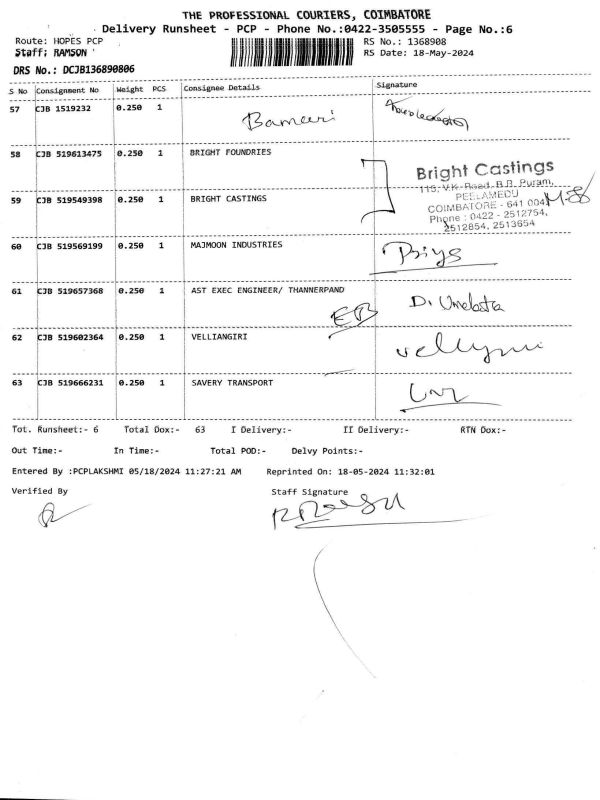 THE PROFESSIONAL COURIERS, COIMBATORE
Delivery Runsheet - PCP - Phone No.:0422-3505555 - Page No.:6
Route: HOPES PCP RS No.: 1368908
Staff: RAMSON RS Date: 18-May-2024
DRS No.: DCJB136890806
S No Consignment No Weight PCS Consignee Details Signature
57 CJB 1519232 0.250 1
58 CJB 519613475 0.250 1 BRIGHT FOUNDRIES
Bright Castings
113, V.K. Road, B.R. Puram,
PEELAMEDU
59 CJB 519549398 0.250 1 BRIGHT CASTINGS COIMBATORE - 641 004
Phone : 0422 - 2512754,
2512854, 2513654
60 CJB 519569199 0.250 1 MAJMOON INDUSTRIES Priya
61 CJB 519657368 0.250 1 AST EXEC ENGINEER/ THANNERPAND
EB
62 CJB 519602364 0.250 1 VELLIANGIRI
63 CJB 519666231 0.250 1 SAVERY TRANSPORT
Tot. Runsheet:- 6 Total Dox:- 63 I Delivery:- II Delivery:- RTN Dox:-
Out Time:- In Time:- Total POD:- Delvy Points:-
Entered By :PCPLAKSHMI 05/18/2024 11:27:21 AM Reprinted On: 18-05-2024 11:32:01
Verified By Staff Signature